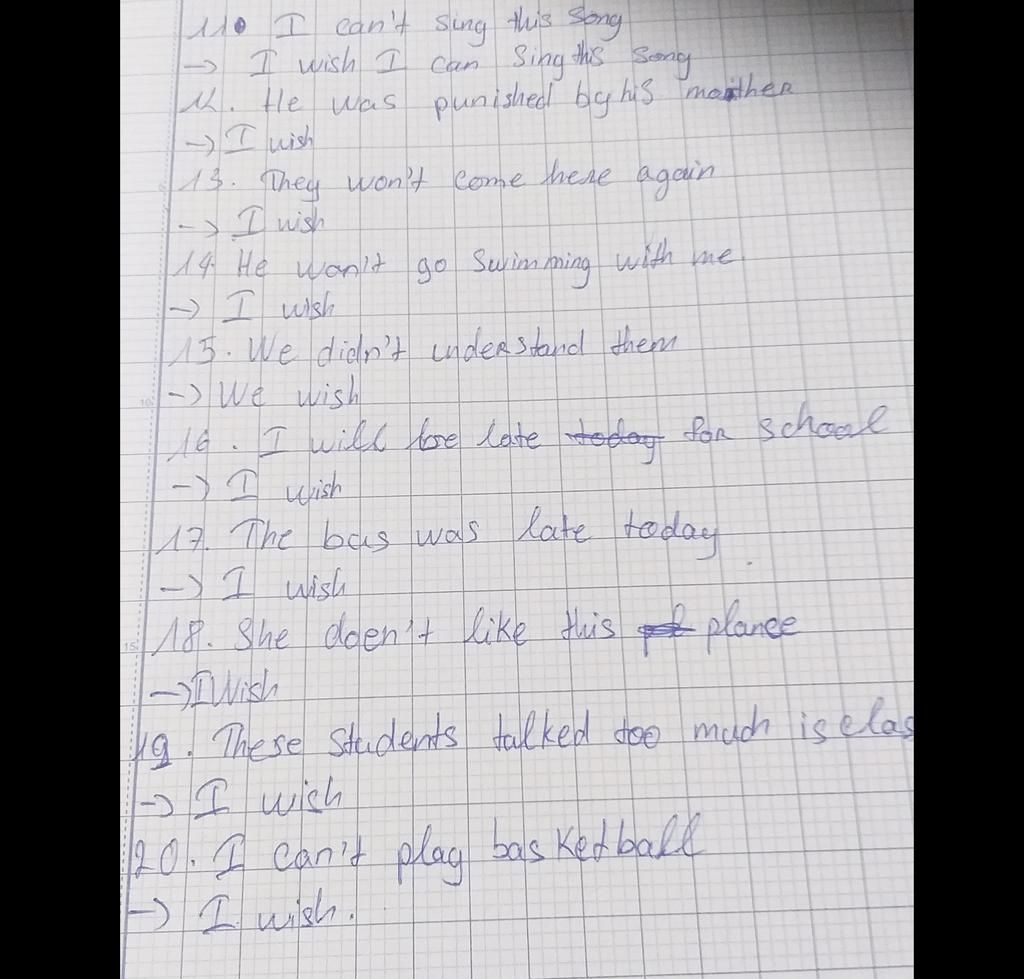 11. I can't sing this song
→ I wish I can sing this song
12. He was punished by his mother
→ I wish
13. They won't come here again
→ I wish
14. He won't go swimming with me
→ I wish
15. We didn't understand them
→ We wish
16. I will be late today for school
→ I wish
17. The bus was late today.
→ I wish
18. She doen't like this place
→ I Wish
19. These students talked too much is clas
→ I wish
20. I can't play basketball
→ I wish.